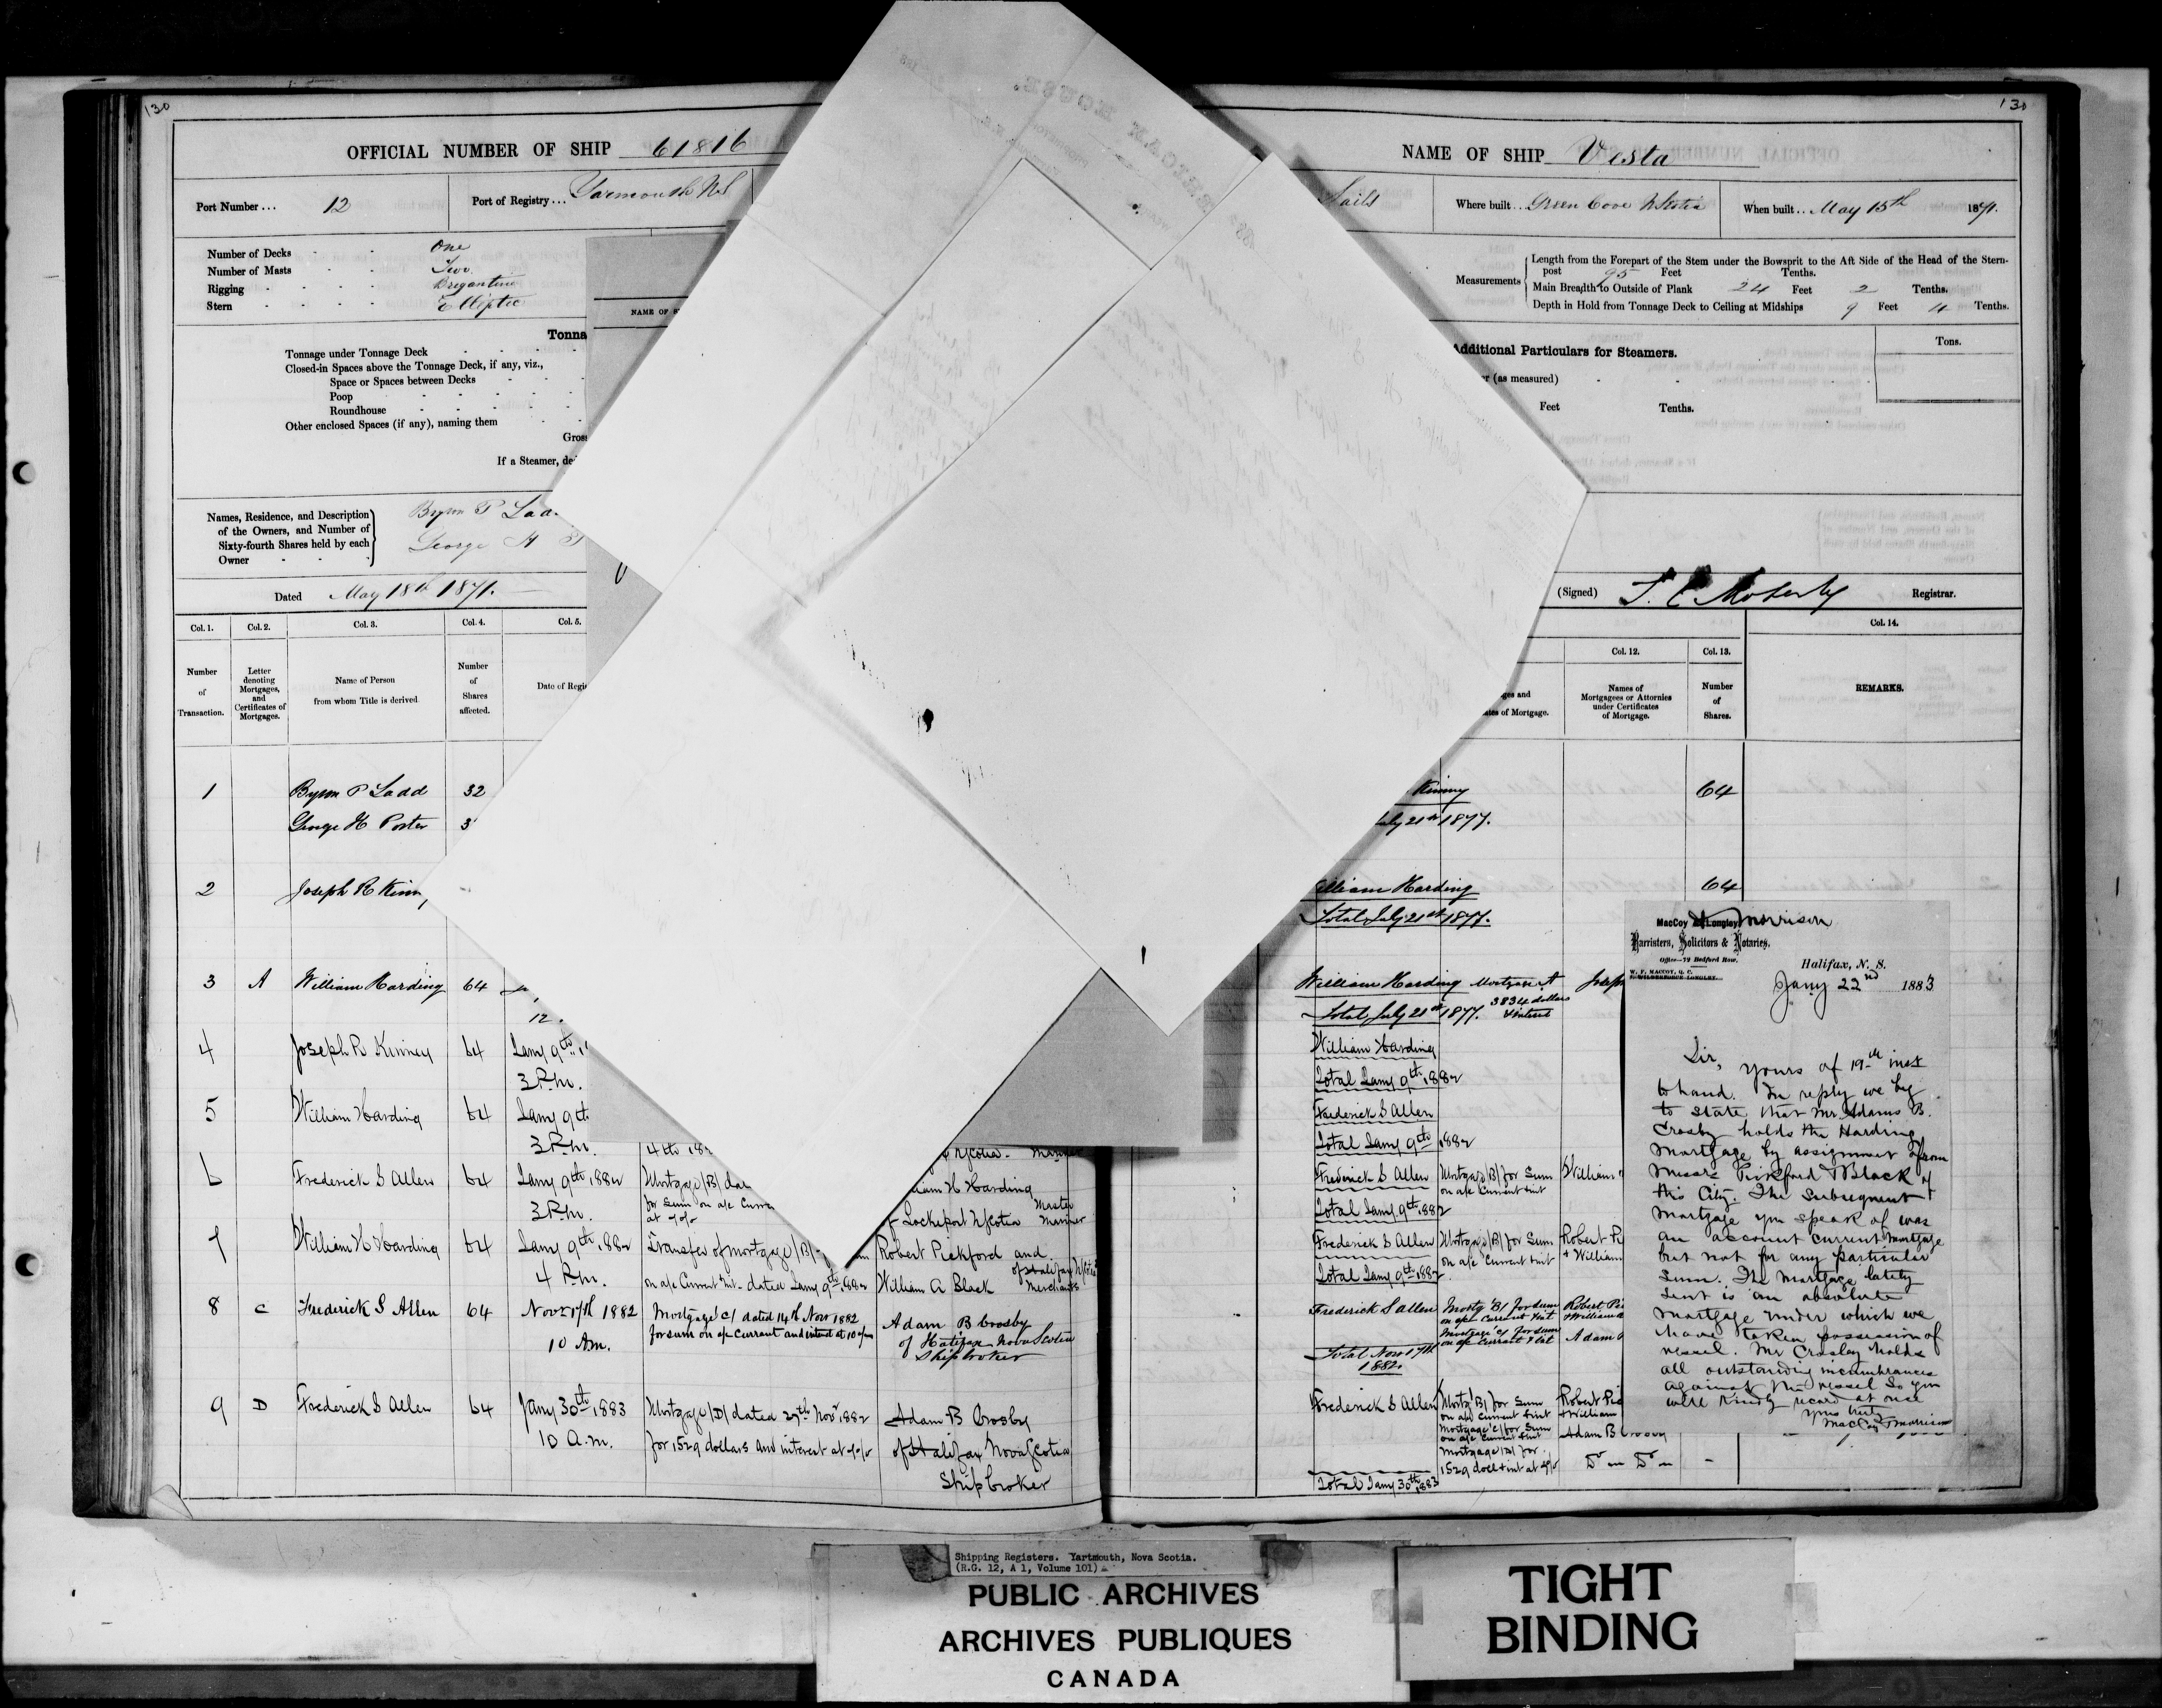 130
OFFICIAL NUMBER OF SHIP 61816
Port Number... 12
Port of Registry... Yarmouth NS
Number of Decks One
Number of Masts Two
Rigging Brigantine
Stern Elliptic
NAME OF
Tonna
Tonnage under Tonnage Deck
Closed-in Spaces above the Tonnage Deck, if any, viz.,
Space or Spaces between Decks
Poop
Roundhouse
Other enclosed Spaces (if any), naming them
Gros
If a Steamer, de
Names, Residence, and Description
of the Owners, and Number of
Sixty-fourth Shares held by each
Owner
Byron P Lad
George H
Dated May 18th 1871.
Col. 1. Col. 2. Col. 3. Col. 4. Col. 5.
Number of Transaction.
Letter denoting Mortgages, and Certificates of Mortgages.
Name of Person from whom Title is derived
Number of Shares affected.
Date of Regi
1 Byron P Ladd 32
George H Porter 3
2 Joseph R Kinn
3 A William Harding 64
12
4 Joseph R Kinney 64 Jany 9th
3 P.m.
5 William Harding 64 Jany 9th
3 P.m. 4th 188
6 Frederick S Allen 64 Jany 9th 1882 Mortgage (B) dat
3 P.m. for Sum on a/c Curre
William H Harding
of Lockeport N Scotia Master Mariner
7 William H Harding 64 Jany 9th 1882 Transfer of mortgage (B)
4 P.m. on a/c Current Int. dated Jany 9th 1882
Robert Pickford and
William A Black of Halifax N Scotia Merchants
8 C Frederick S Allen 64 Novr 17th 1882 Mortgage 'C' dated 14th Novr 1882
10 Am. for sum on a/c Current and interest at 10 o/o
Adam B Crosby
of Halifax Nova Scotia
Shipbroker
9 D Frederick S Allen 64 Jany 30th 1883 Mortgage (D) dated 27th Novr 1882
10 a.m. for 1529 dollars and interest at
Adam B Crosby
of Halifax Nova Scotia
Shipbroker
130
NAME OF SHIP Vesta
Sails
Where built... Green Cove N Scotia
When built.. May 15th 1871.
Measurements
Length from the Forepart of the Stem under the Bowsprit to the Aft Side of the Head of the Stern-
post 95 Feet Tenths.
Main Breadth to Outside of Plank 24 Feet 2 Tenths.
Depth in Hold from Tonnage Deck to Ceiling at Midships 9 Feet 4 Tenths.
Additional Particulars for Steamers.
Tons.
(as measured)
Feet Tenths.
(Signed) Registrar.
Col. 12. Col. 13. Col. 14.
ges and
ates of Mortgage.
Names of Mortgagees or Attornies under Certificates of Mortgage.
Number of Shares.
REMARKS.
Kinney 64
July 21st 1877.
William Harding 64
Total July 21st 1877.
William Harding Mortgage A Joseph
Total July 21st 1877. 3834 dollars & interest
William Harding
Total Jany 9th 1882
Frederick S Allen
Total Jany 9th 1882
Frederick S Allen Mortgage (B) for Sum on a/c Current & int William
Total Jany 9th 1882
Frederick S Allen Mortgage (B) for Sum on a/c Current & int Robert Pi
+ William
Total Jany 9th 1882
Frederick S Allen Mortg 'B' for sum on a/c Current & int Robert Pi
& William
Mortgage 'C' for sum on a/c Current & int Adam
Total Novr 17th
1882.
Frederick S Allen Mortg 'B' for Sum on a/c Current & int Robert Pic
+ William
Mortgage 'C' for Sum on a/c Current & int Adam B Crosby
Mortgage (D) for 1529 doll + int at Do Do
Total Jany 30th 1883
MacCoy & Longley Morrison
Barristers, Solicitors & Notaries.
Office—72 Bedford Row.
W. F. MACCOY, Q. C.
Halifax, N. S.
Jany 22nd 1883
Sir,
Yours of 19th inst
to hand. In reply we beg
to state that Mr. Adams B.
Crosby holds the Harding
Mortgage by assignment from
Messrs Pickford & Black of
this City. The Subsequent
Mortgage you speak of was
an account current Mortgage
but not for any particular
Sum. The Mortgage lately
sent is an absolute
Mortgage under which we
have taken possession of
vessel. Mr Crosby holds
all outstanding incumbrances
against the vessel So you
will kindly record at once
Yrs truly
MacCoy & Morrison
Shipping Registers. Yartmouth, Nova Scotia.
(R.G. 12, A 1, Volume 101)
PUBLIC ARCHIVES
ARCHIVES PUBLIQUES
CANADA
TIGHT
BINDING